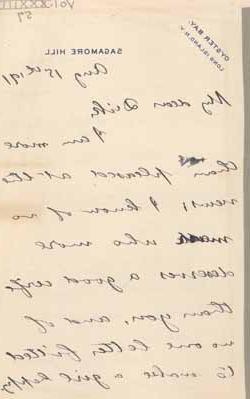 57
OYSTER BAY,
LONG ISLAND, N.Y.
SAGAMORE HILL
Aug 15th 191
My dear Dick,
I am more
than pleased at the
news; I know of no
man who more
deserves a good wife
than you, and of
no one better fitted
to make a girl happy.